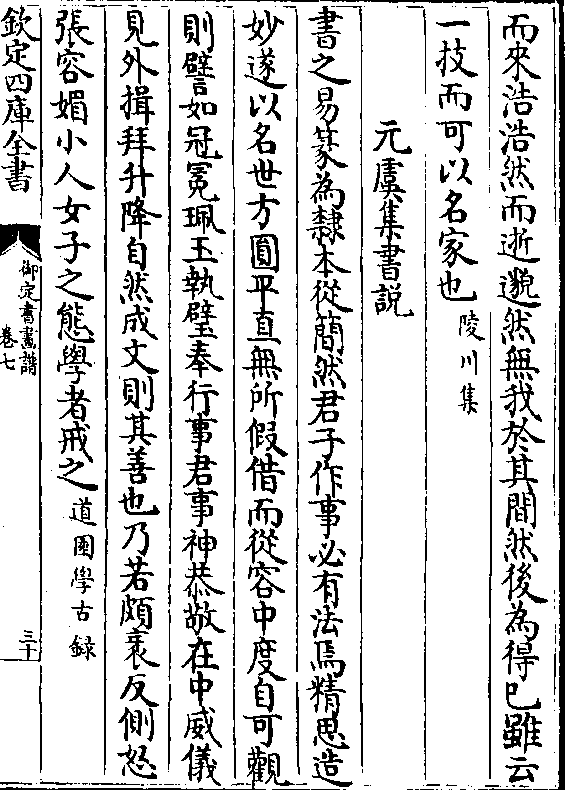 而來浩浩然而逝邈然無我於其間然後為得已雖云
一技而可以名家也陵川集
元虞集書説
書之易篆為隸本從簡然君子作事必有法焉精思造
妙遂以名世方圓平直無所假借而從容中度自可觀
則譬如冠冕珮玉執璧奉行事君事神恭敬在中威儀
見外揖拜升降自然成文則其善也乃若頗衺反側怒
張容媚小人女子之態學者戒之道園學古録
欽定四庫全書
御定書畫譜
卷七
三十